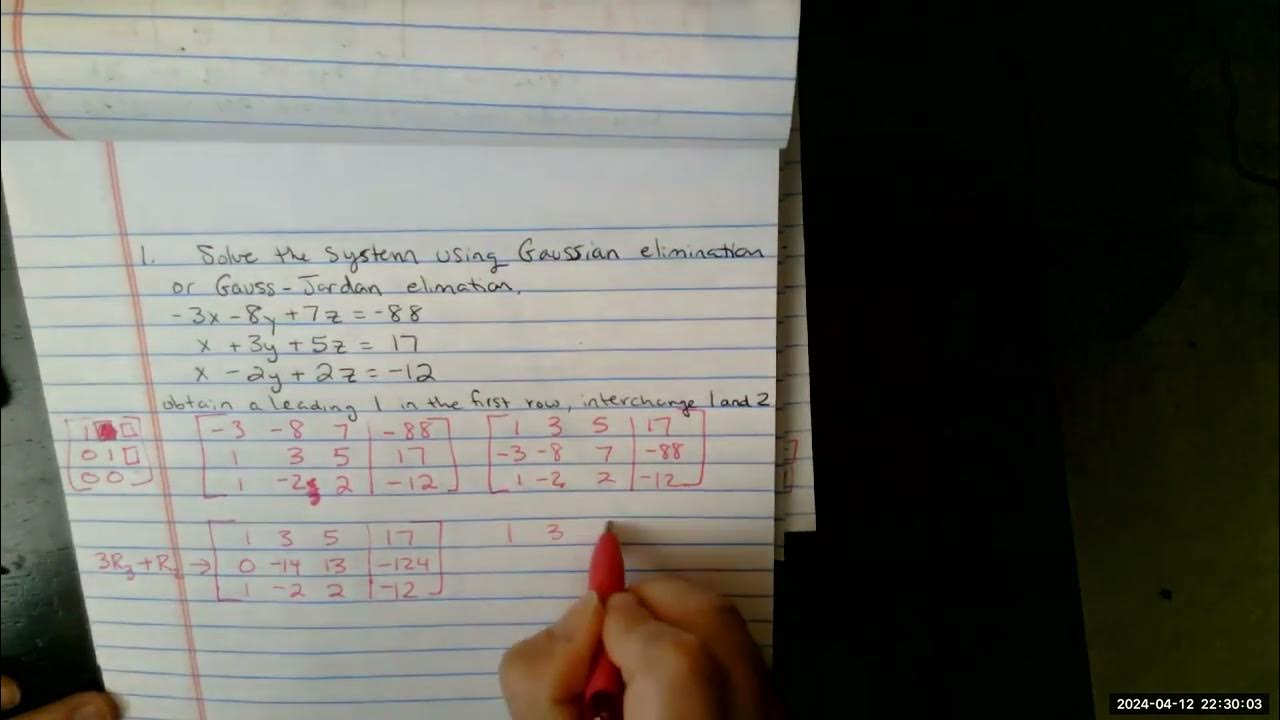 1. Solve the System using Gaussian elimination
or Gauss-Jordan elimation.
-3x-8y+7z=-88
x+3y+5z=17
x-2y+2z=-12
obtain a leading 1 in the first row, interchange 1 and 2
1 □ -3 -8 7 | -88 1 3 5 | 17
0 1 □ 1 3 5 | 17 -3 -8 7 | -88
0 0 1 -2 2 | -12 1 -2 2 | -12
1 3 5 | 17 1 3
3R3+R → 0 -14 13 | -124
1 -2 2 | -12
2024-04-12 22:30:03